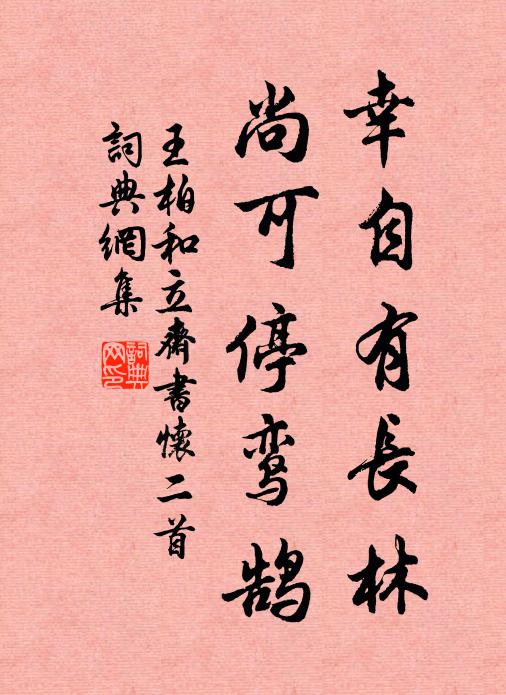 幸自有長林
尚可停鸾鹄
王柏和立齋書懷二首
詞典網集
詞典网印